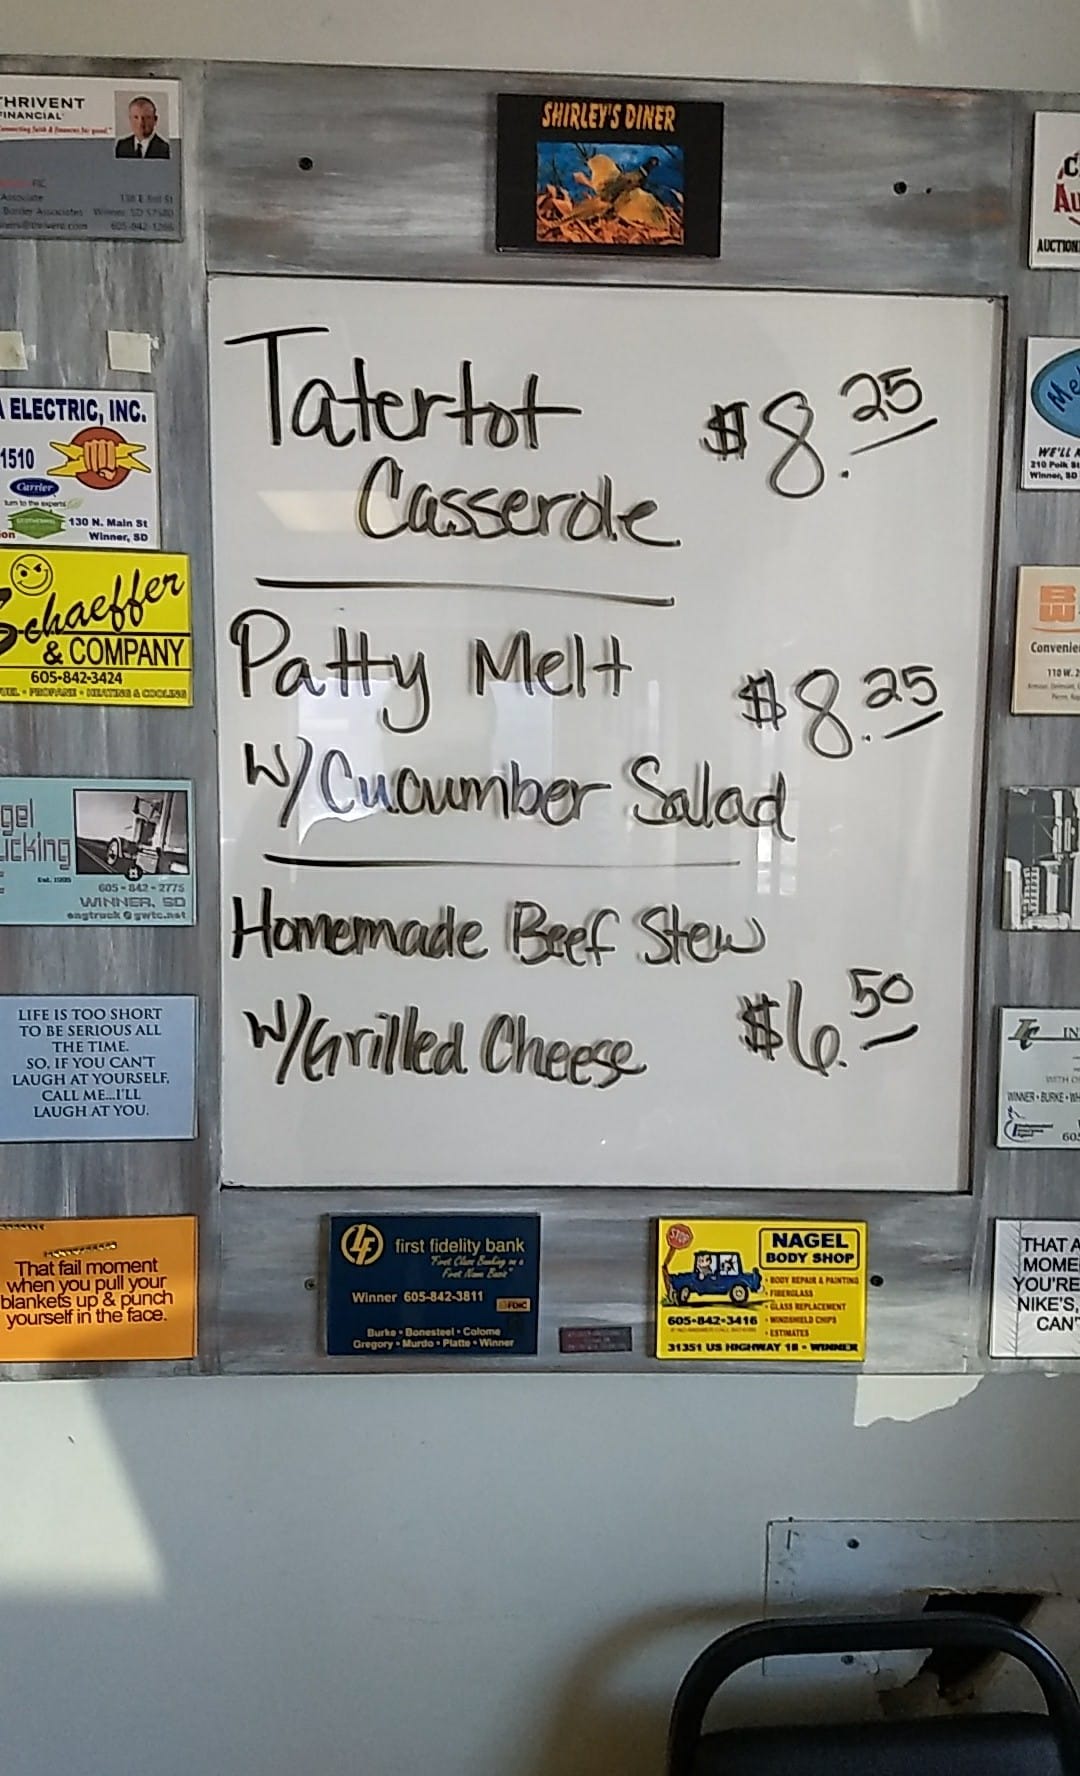 THRIVENT
FINANCIAL
Associate 138 E 3rd St
Winner, SD 57580
SHIRLEY'S DINER
AUCTION
ELECTRIC, INC.
1510
Carrier
turn to the experts
130 N. Main St
Winner, SD
Schaeffer
& COMPANY
605-842-3424
FUEL • PROPANE • HEATING & COOLING
605 - 842 - 2775
WINNER, SD
engtruck@gwtc.net
LIFE IS TOO SHORT
TO BE SERIOUS ALL
THE TIME.
SO, IF YOU CAN'T
LAUGH AT YOURSELF,
CALL ME...I'LL
LAUGH AT YOU.
That fail moment
when you pull your
blankets up & punch
yourself in the face.
Tatertot $8.25
Casserole
Patty Melt $8.25
W/Cucumber Salad
Homemade Beef Stew
W/Grilled Cheese $6.50
first fidelity bank
"First Class Banking on a
First Name Basis"
Winner 605-842-3811
FDIC
Burke • Bonesteel • Colome
Gregory • Murdo • Platte • Winner
STOP
NAGEL
BODY SHOP
• BODY REPAIR & PAINTING
• FIBERGLASS
• GLASS REPLACEMENT
• WINDSHIELD CHIPS
• ESTIMATES
605-842-3416
31351 US HIGHWAY 18 • WINNER
WE'LL
210 Polk St
Winner, SD
110 W.
WINNER • BURKE
THAT
YOU'RE
NIKE'S,